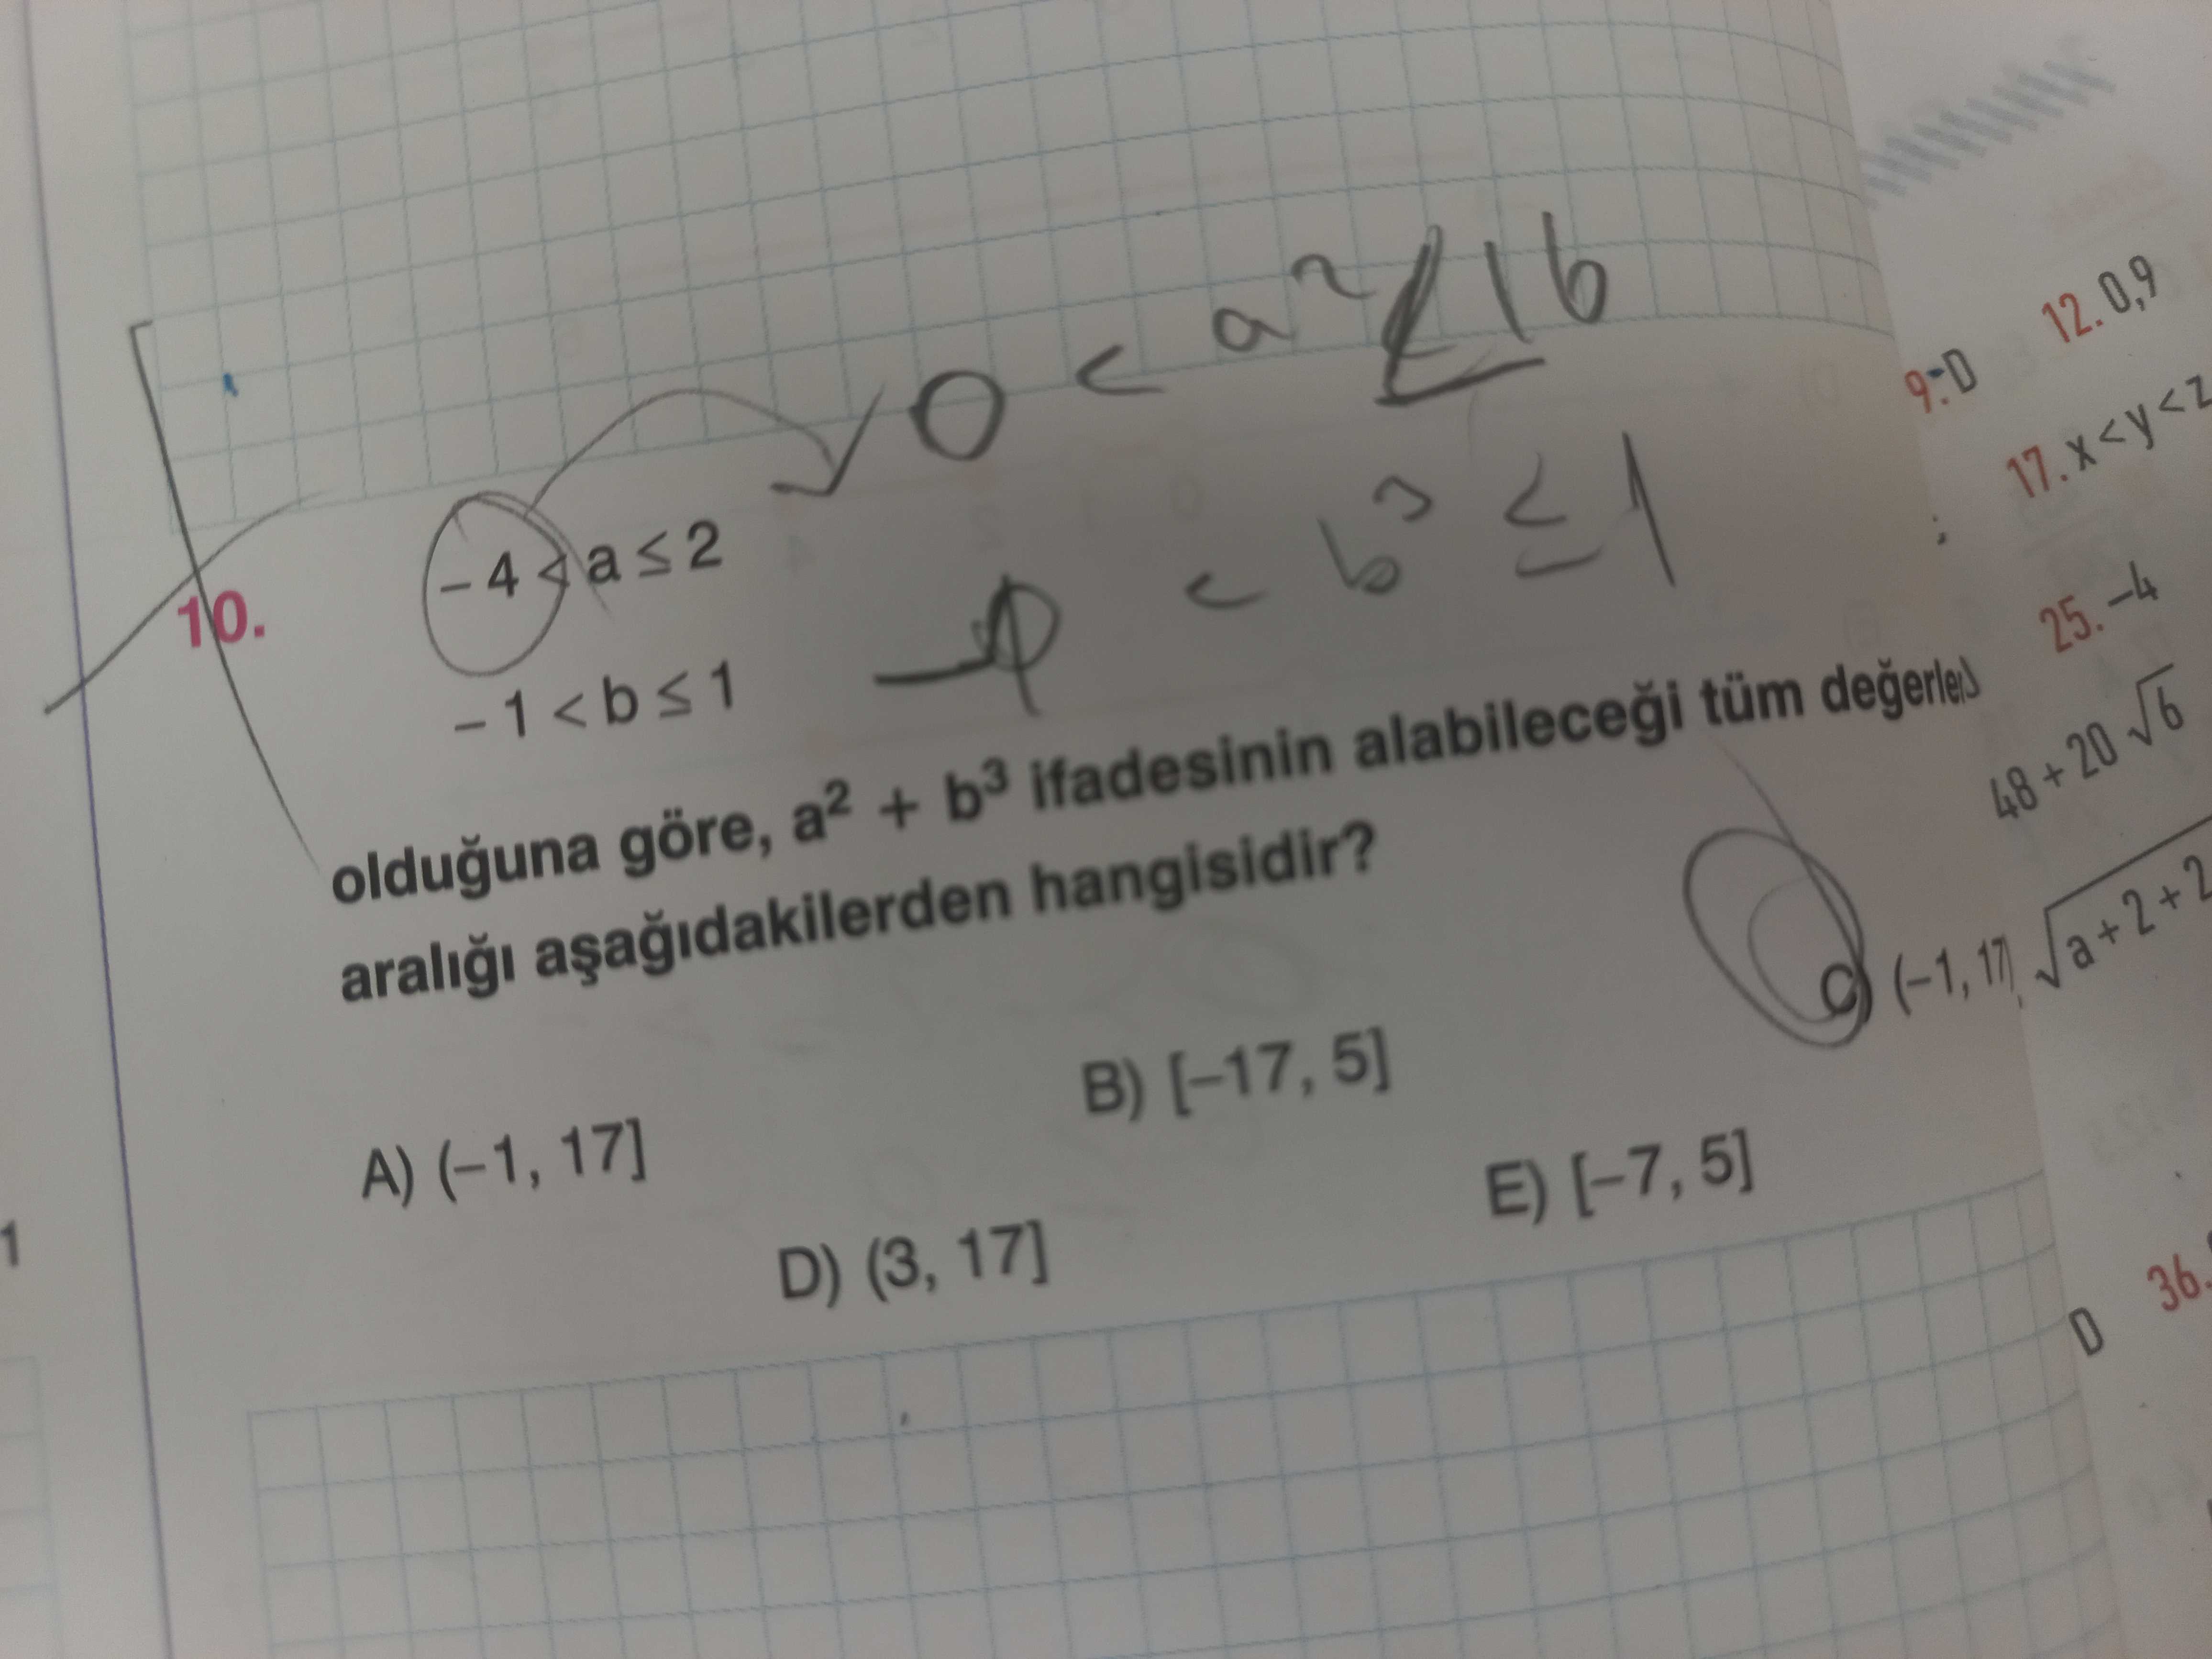 0 < a² ≤ 16
10. – 4 < a ≤ 2
< b³ ≤ 1
– 1 < b ≤ 1
olduğuna göre, a² + b³ ifadesinin alabileceği tüm değerler
aralığı aşağıdakilerden hangisidir?
A) (–1, 17]
B) [–17, 5]
C) (–1, 17
D) (3, 17]
E) [–7, 5]
1
9. D
12. 0,9
17. x < y < z
25. –4
48 + 20 √6
√a + 2 + 2
D
36.